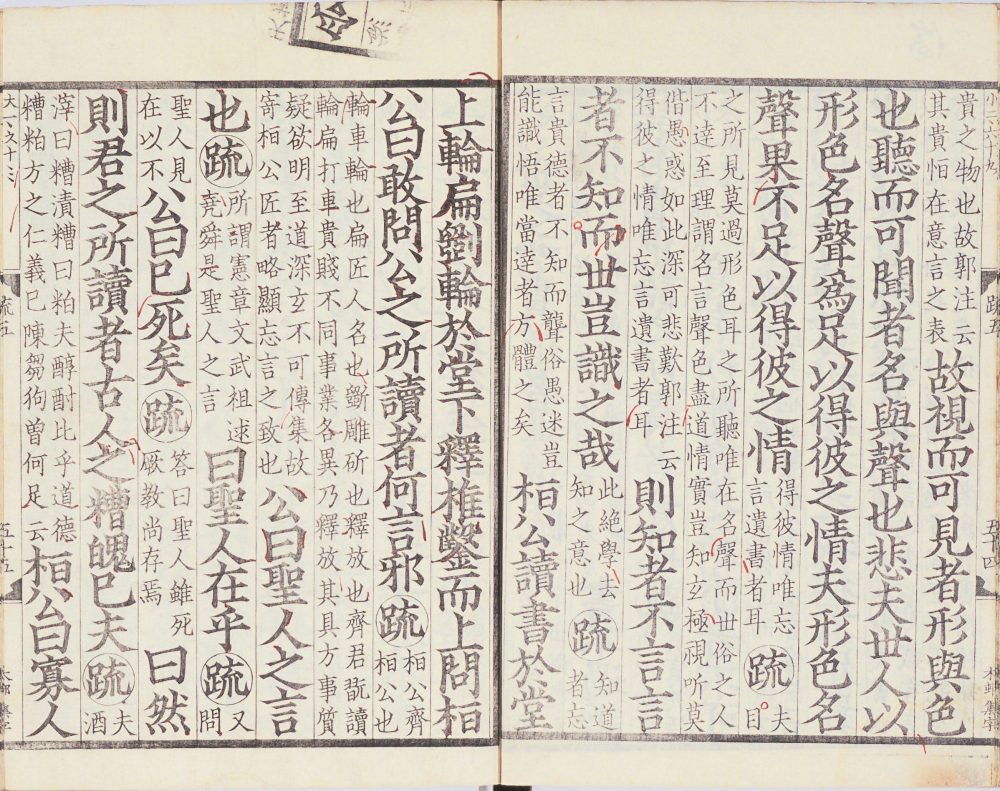 疏五
五十四
貴之物也故郭注云
其貴恒在意言之表
故視而可見者形與色
也聽而可聞者名與聲也悲夫世人以
形色名聲爲足以得彼之情夫形色名
聲果不足以得彼之情
得彼情唯忘
言遺書者耳
疏
夫
目
之所見莫過形色耳之所聽唯在名聲而世俗之人
不達至理謂名言聲色盡道情實豈知玄極視听莫
偕愚惑如此深可悲歎郭注云
得彼之情唯忘言遺書者耳
則知者不言言
者不知而世豈識之哉
此絕學去
知之意也
疏
知道
者忘
言貴德者不知而聾俗愚迷豈
能識悟唯當達者方體之矣
桓公讀書於堂
上輪扁斵輪於堂下釋椎鑿而上問桓
公曰敢問公之所讀者何言邪
疏
桓公齊
桓公也
輪車輪也扁匠人名也斵雕斫也釋放也齊君翫讀
輪扁打車貴賤不同事業各異乃釋放其具方事質
疑欲明至道深玄不可傳集故
寄桓公匠者略顯忘言之致也
公曰聖人之言
也
疏
所謂憲章文武祖述
堯舜是聖人之言
曰聖人在乎
疏
又
問
聖人見
在以不
公曰已死矣
疏
答曰聖人雖死
厥教尚存焉
曰然
則君之所讀者古人之糟魄已夫
疏
夫
酒
滓曰糟漬糟曰粕夫醇酎比乎道德
糟粕方之仁義已陳芻狗曾何足云
桓公曰寡人
疏五
五十五